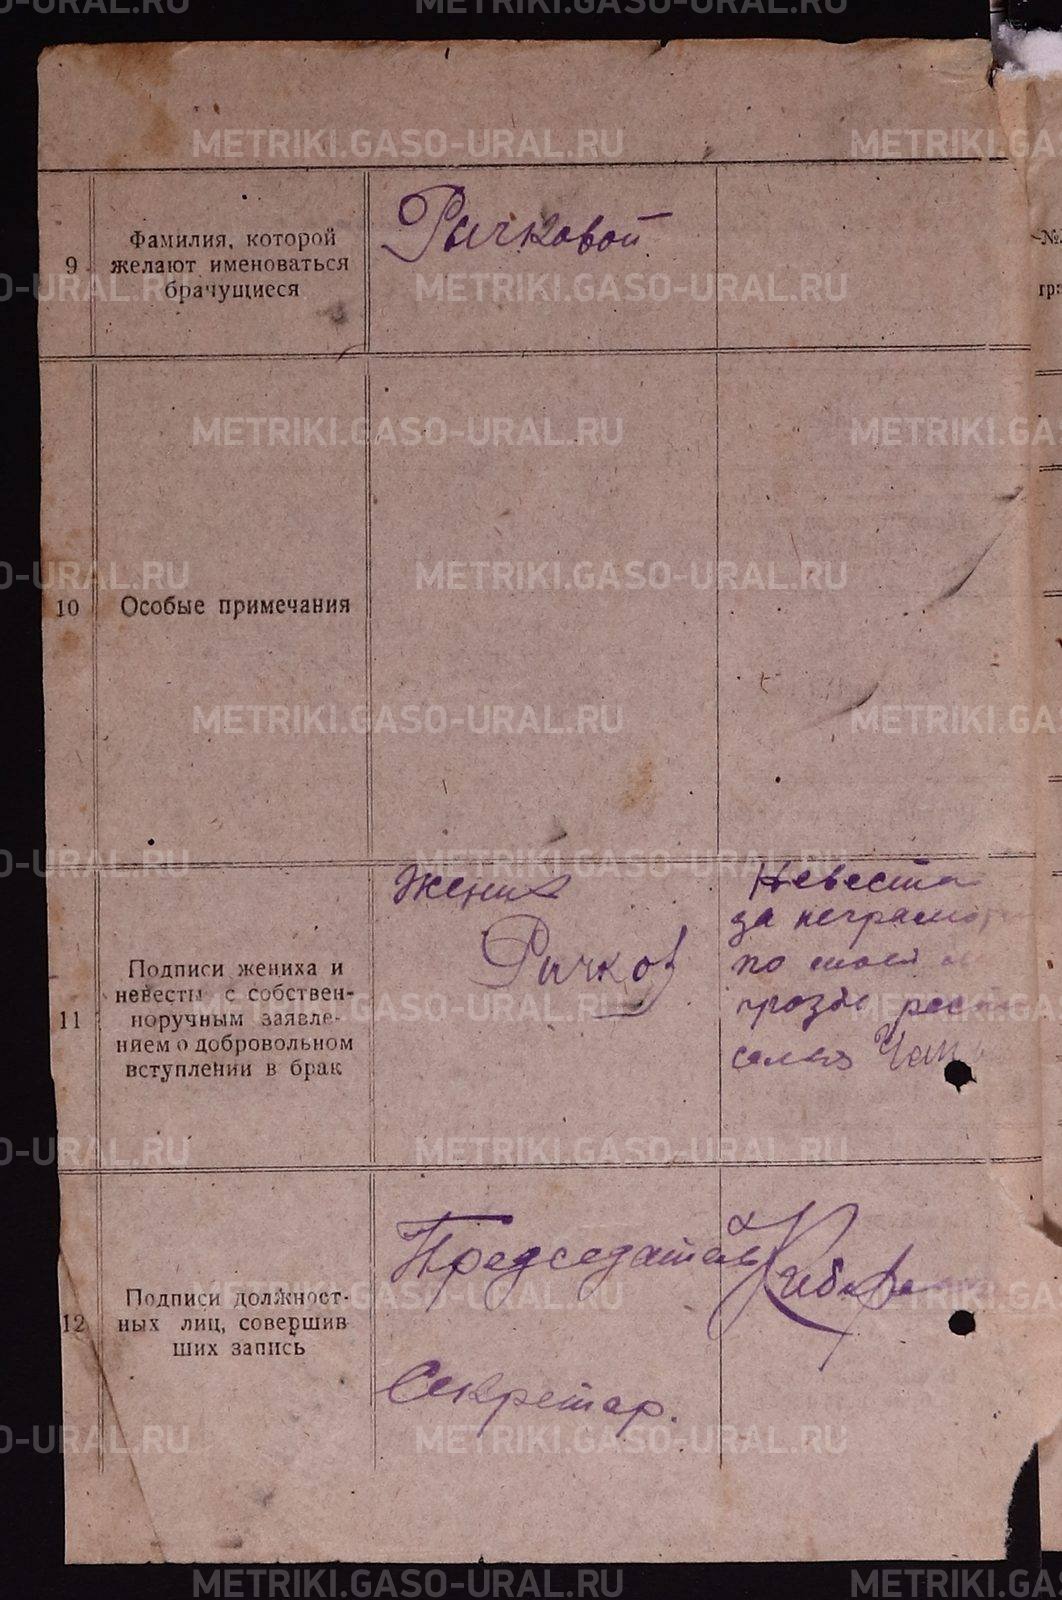 METRIKI.GASO-URAL.RU
9
Фамилия, которой
желают именоваться
брачущиеся
Рычковой
№
гр
10
Особые примечания
11
Подписи жениха и
невесты с собствен-
норучным заявле-
нием о добровольном
вступлении в брак
Жених
Рычков
Невеста
за неграмот
по
прозбе
12
Подписи должност-
ных лиц, совершив
ших запись
Председатель
Секретар.